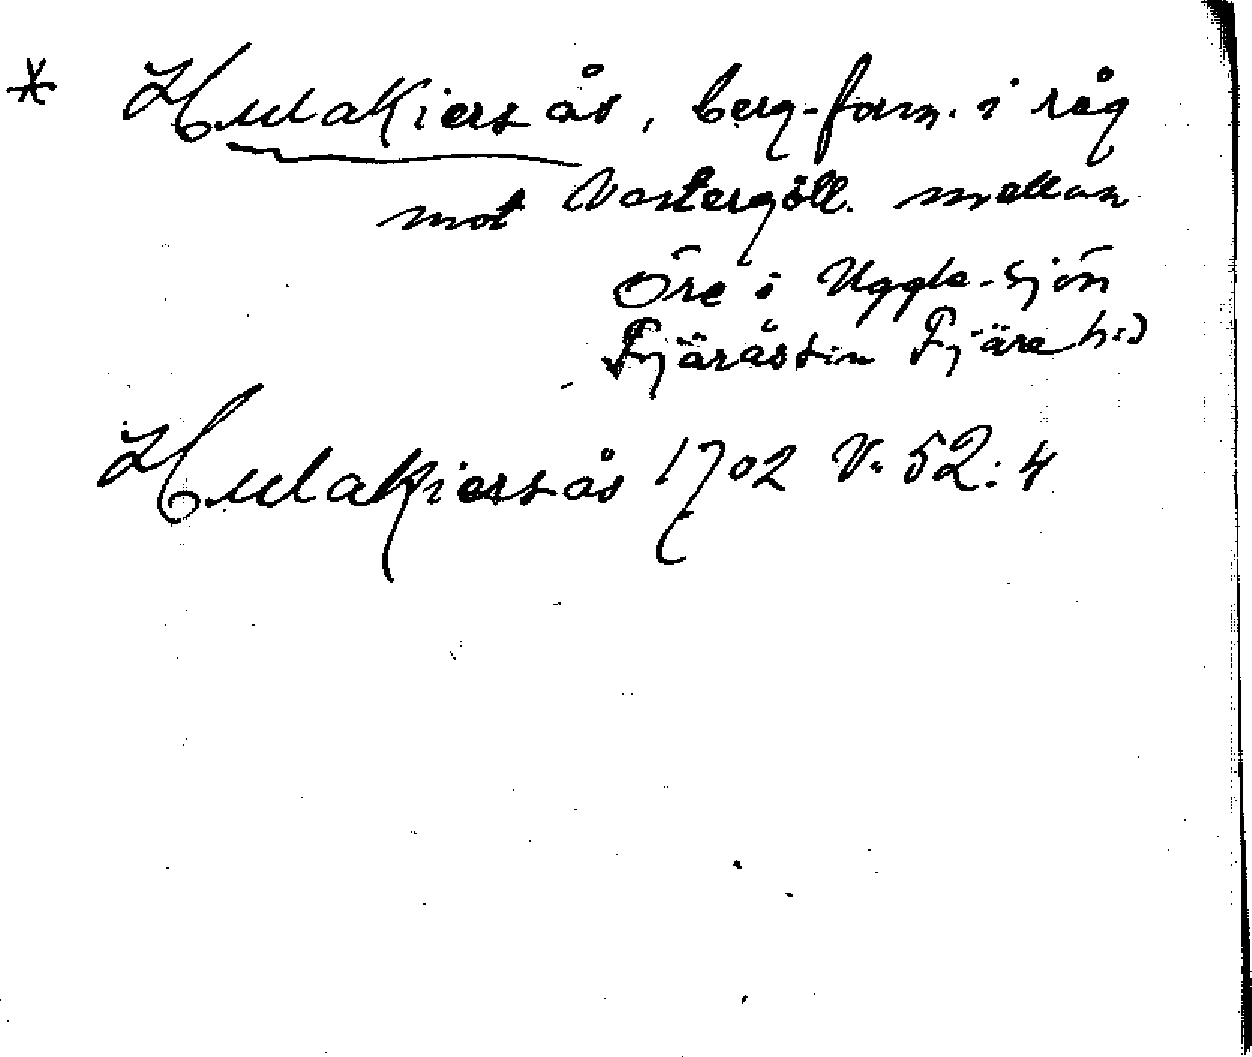 * Hulakiers ås, berg-form. i råg
mot Västergötl. mellan
Öre i Uggle-sjön
Fjärås Fjäre hd
Hulakiersås 1702 V. 52:4